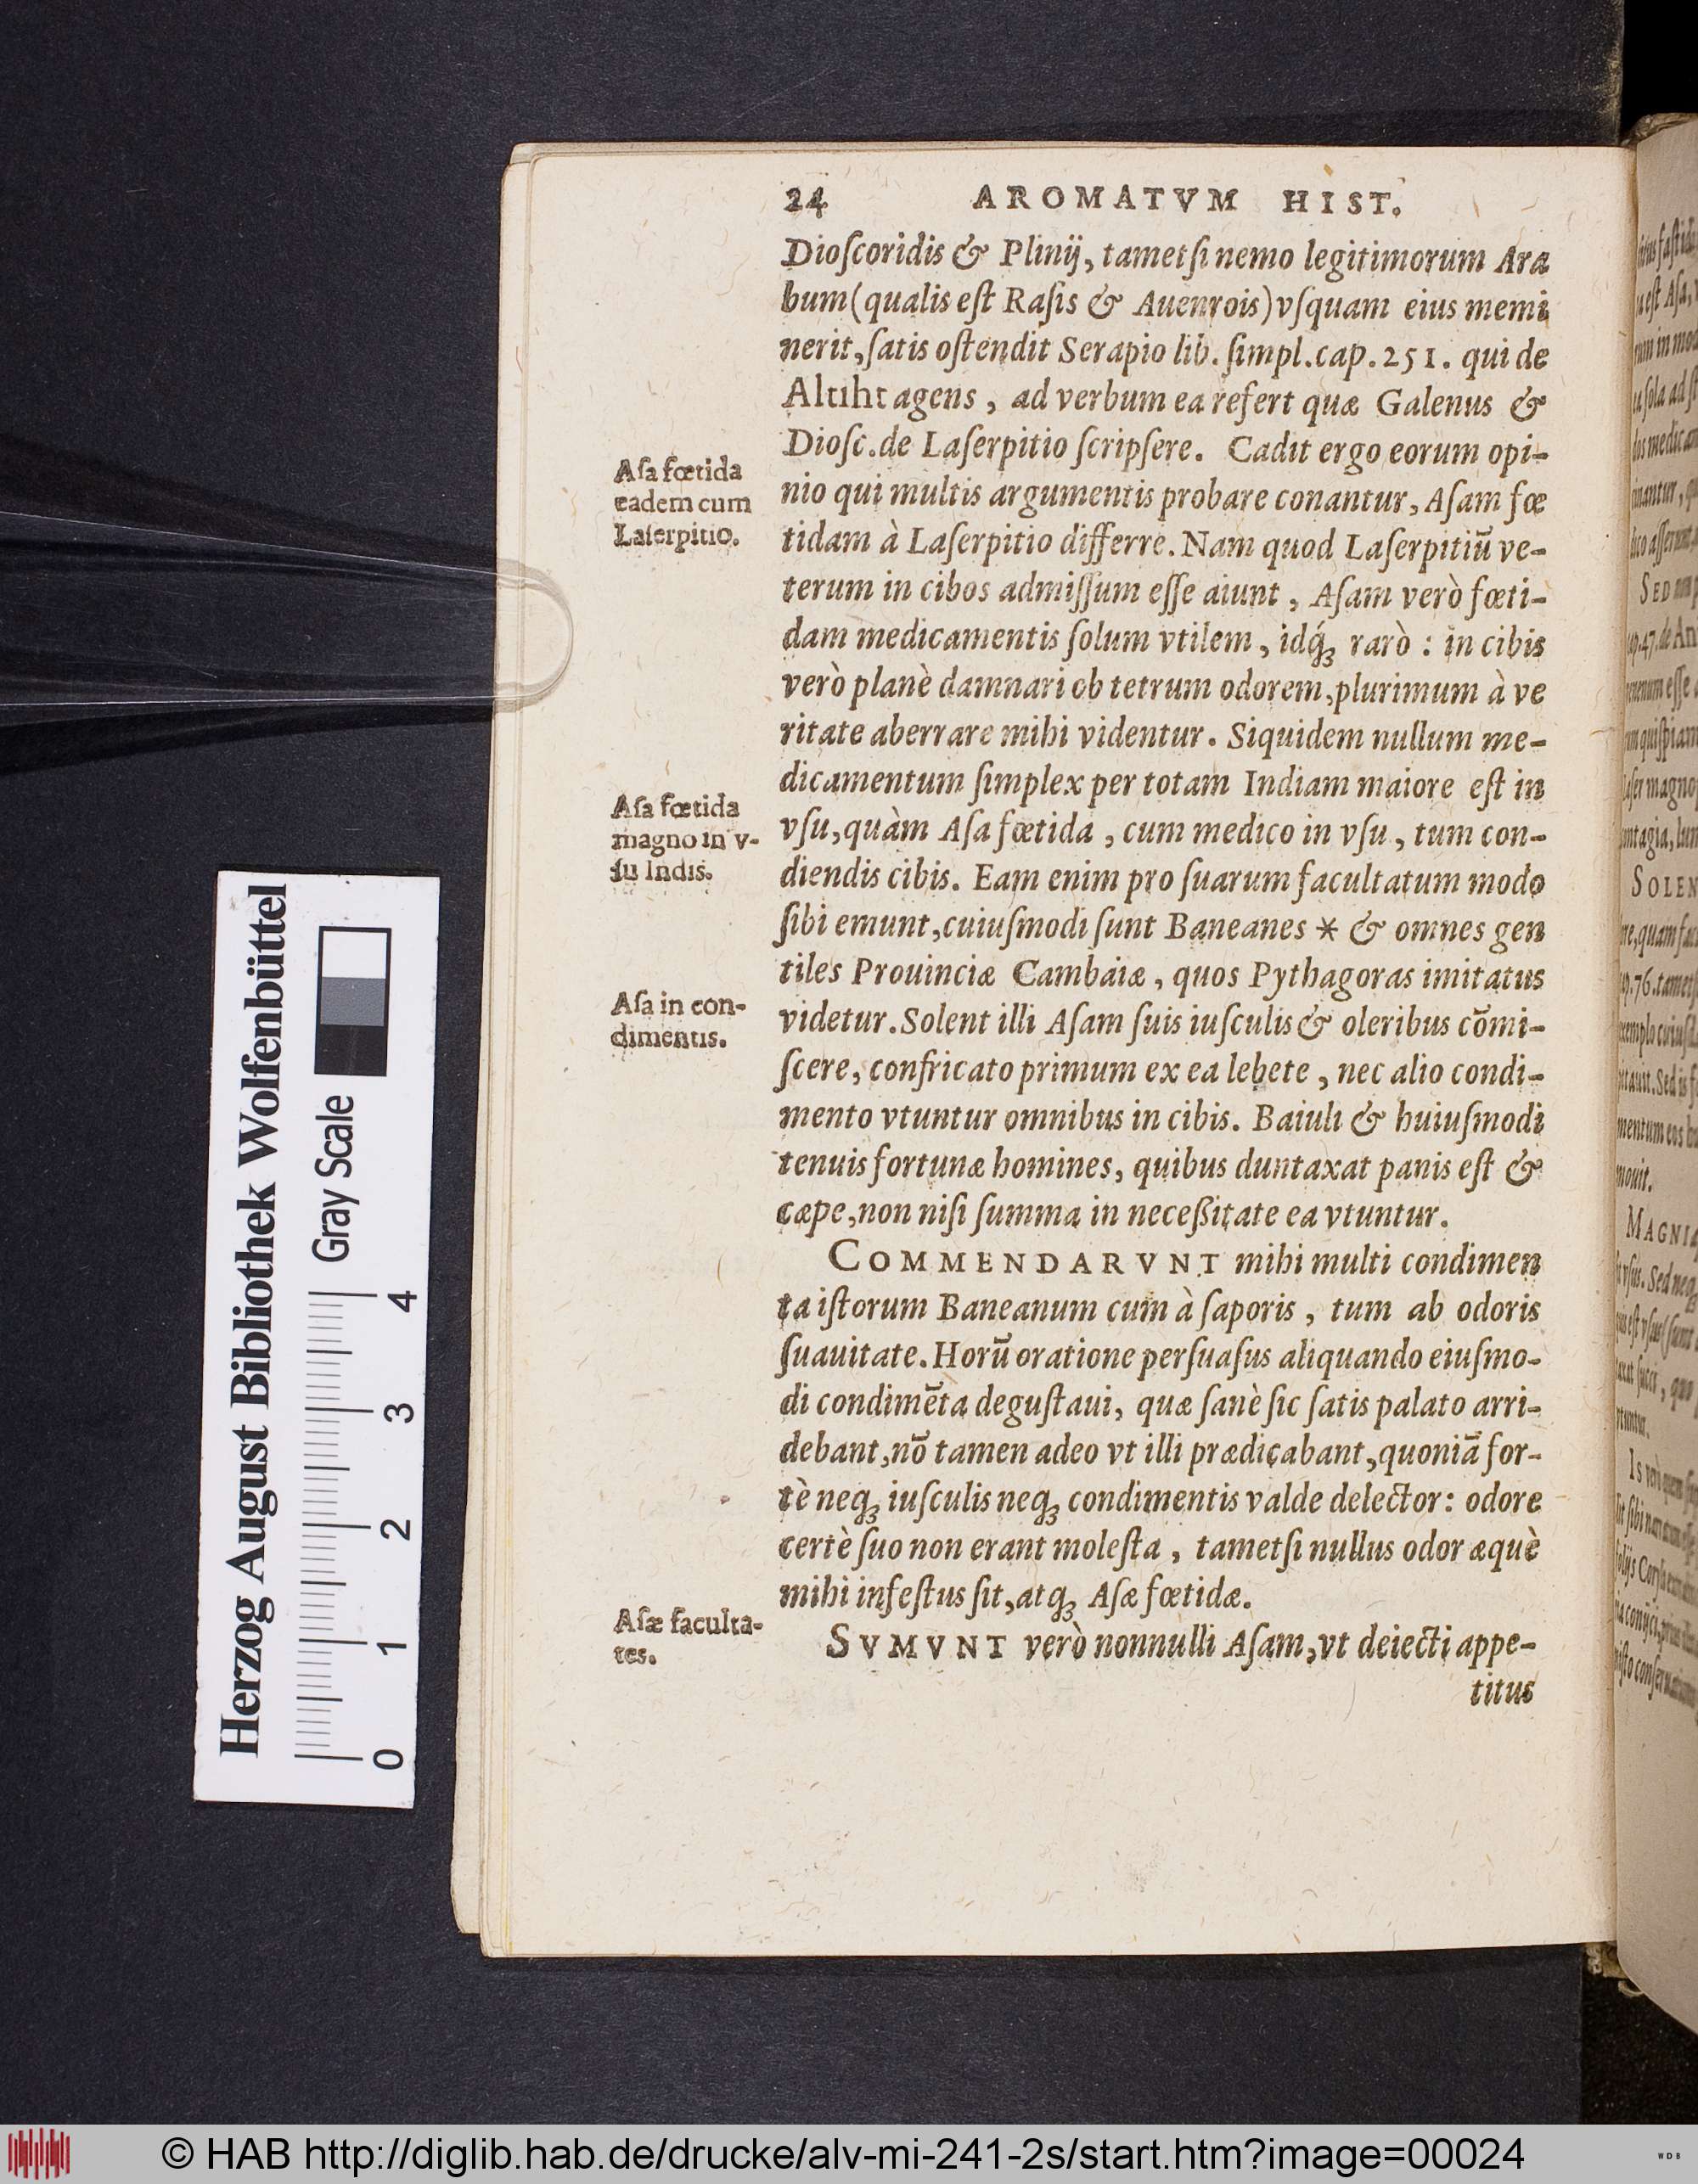 24 AROMATVM HIST.
Dioſcoridis & Plinij, tametſi nemo legitimorum Ara
bum (qualis eſt Raſis & Auenrois) vſquam eius memi
nerit, ſatis oſtendit Serapio lib. ſimpl. cap. 251. qui de
Altiht agens, ad verbum ea refert quæ Galenus &
Dioſc. de Laſerpitio ſcripſere. Cadit ergo eorum opi-
nio qui multis argumentis probare conantur, Aſam fœ
tidam à Laſerpitio differre. Nam quod Laſerpitiũ ve-
terum in cibos admiſſum eſſe aiunt, Aſam verò fœti-
dam medicamentis ſolum vtilem, idq́; rarò: in cibis
verò planè damnari ob tetrum odorem, plurimum à ve
ritate aberrare mihi videntur. Siquidem nullum me-
dicamentum ſimplex per totam Indiam maiore eſt in
vſu, quàm Aſa fœtida, cum medico in vſu, tum con-
diendis cibis. Eam enim pro ſuarum facultatum modo
ſibi emunt, cuiuſmodi ſunt Baneanes * & omnes gen
tiles Prouinciæ Cambaiæ, quos Pythagoras imitatus
videtur. Solent illi Aſam ſuis iuſculis & oleribus cõmi-
ſcere, confricato primum ex ea lebete, nec alio condi-
mento vtuntur omnibus in cibis. Baiuli & huiuſmodi
tenuis fortunæ homines, quibus duntaxat panis eſt &
cæpe, non niſi ſumma in neceßitate ea vtuntur.
COMMENDARVNT mihi multi condimen
ta iſtorum Baneanum cum à ſaporis, tum ab odoris
ſuauitate. Horũ oratione perſuaſus aliquando eiuſmo-
di condimẽta deguſtaui, quæ ſanè ſic ſatis palato arri-
debant, nõ tamen adeo vt illi prædicabant, quoniã for-
tè neq; iuſculis neq; condimentis valde delector: odore
certè ſuo non erant moleſta, tametſi nullus odor æquè
mihi infeſtus ſit, atq; Aſæ fœtidæ.
SVMVNT verò nonnulli Aſam, vt deiecti appe-
titus
Aſa fœtida
eadem cum
Laſerpitio.
Aſa fœtida
magno in v-
ſu Indis.
Aſa in con-
dimentis.
Aſæ faculta-
tes.
Herzog August Bibliothek Wolfenbüttel
Gray Scale
0 1 2 3 4
© HAB http://diglib.hab.de/drucke/alv-mi-241-2s/start.htm?image=00024
WDB